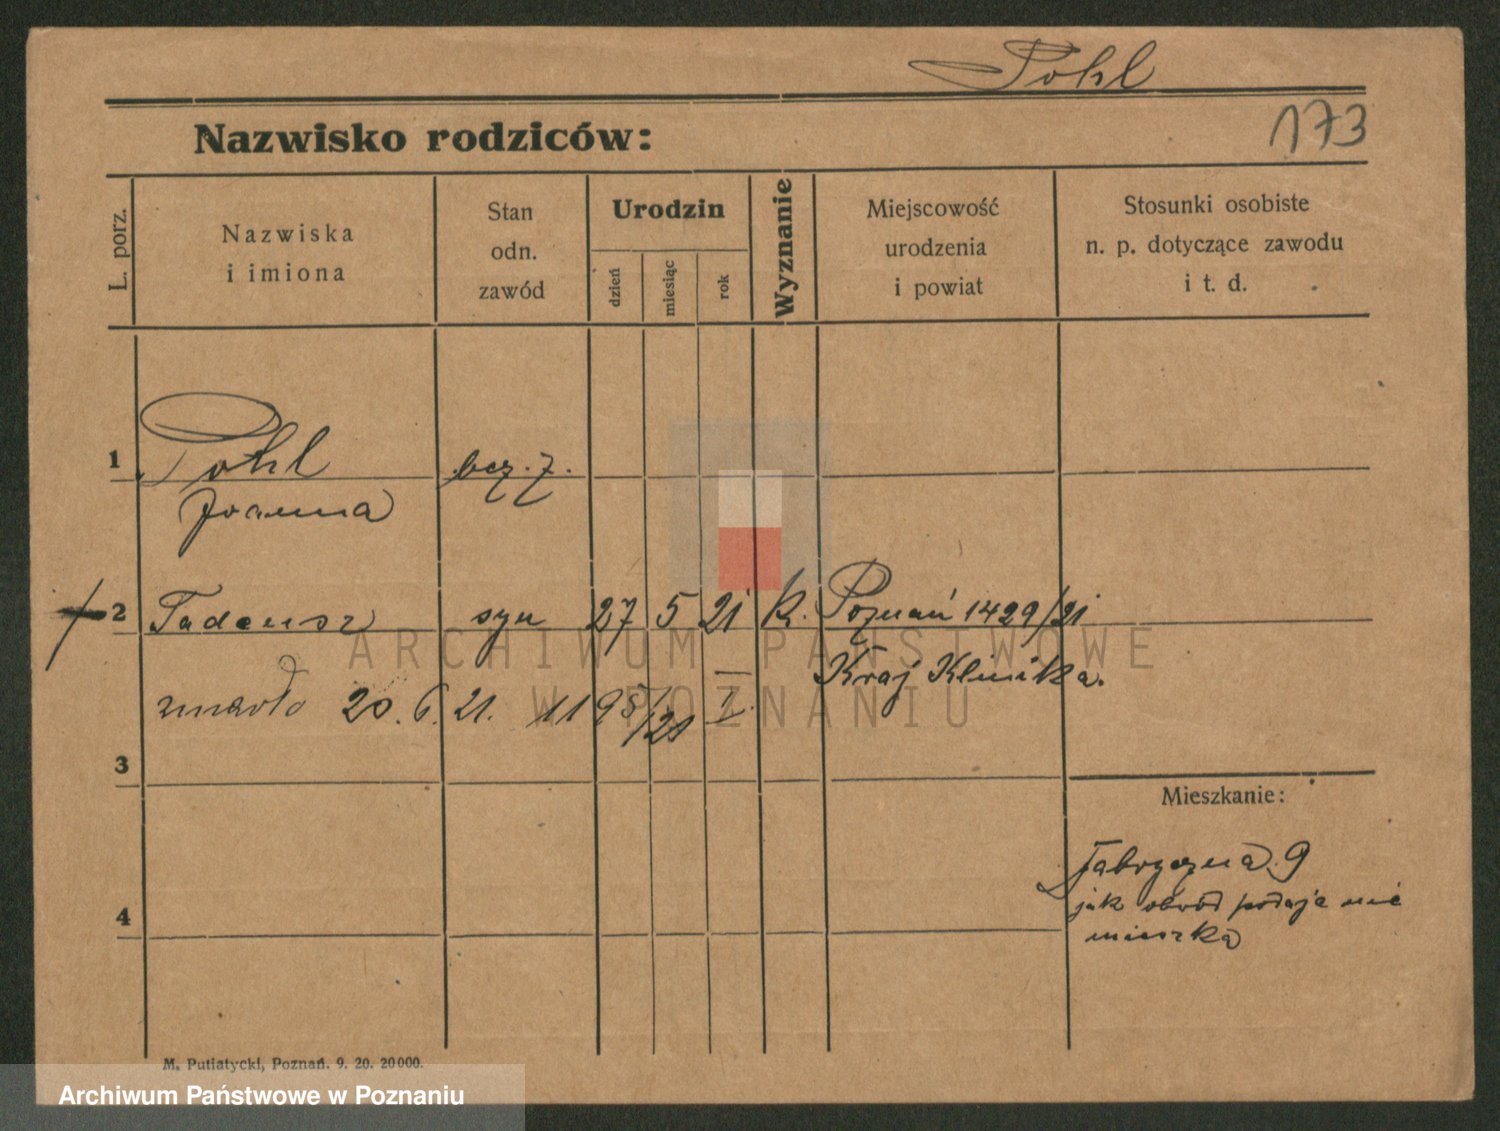 Pohl
Nazwisko rodziców:
173
L. porz.
Nazwiska
i imiona
Stan
odn.
zawód
Urodzin
dzień
miesiąc
rok
Wyznanie
Miejscowość
urodzenia
i powiat
Stosunki osobiste
n. p. dotyczące zawodu
i t. d.
1
Pohl
bez. z.
Joanna
2 Tadeusz syn 27 5 21 K. Poznań 1429/21
Kraj Klinika.
zmarło 20.6.21. 1195/21 I.
3
Mieszkanie:
Fabryczna 9
jak obwód podaje nie
mieszka
4
M. Putiatycki, Poznań. 9. 20. 20000.
ARCHIWUM PAŃSTWOWE
W POZNANIU
Archiwum Państwowe w Poznaniu